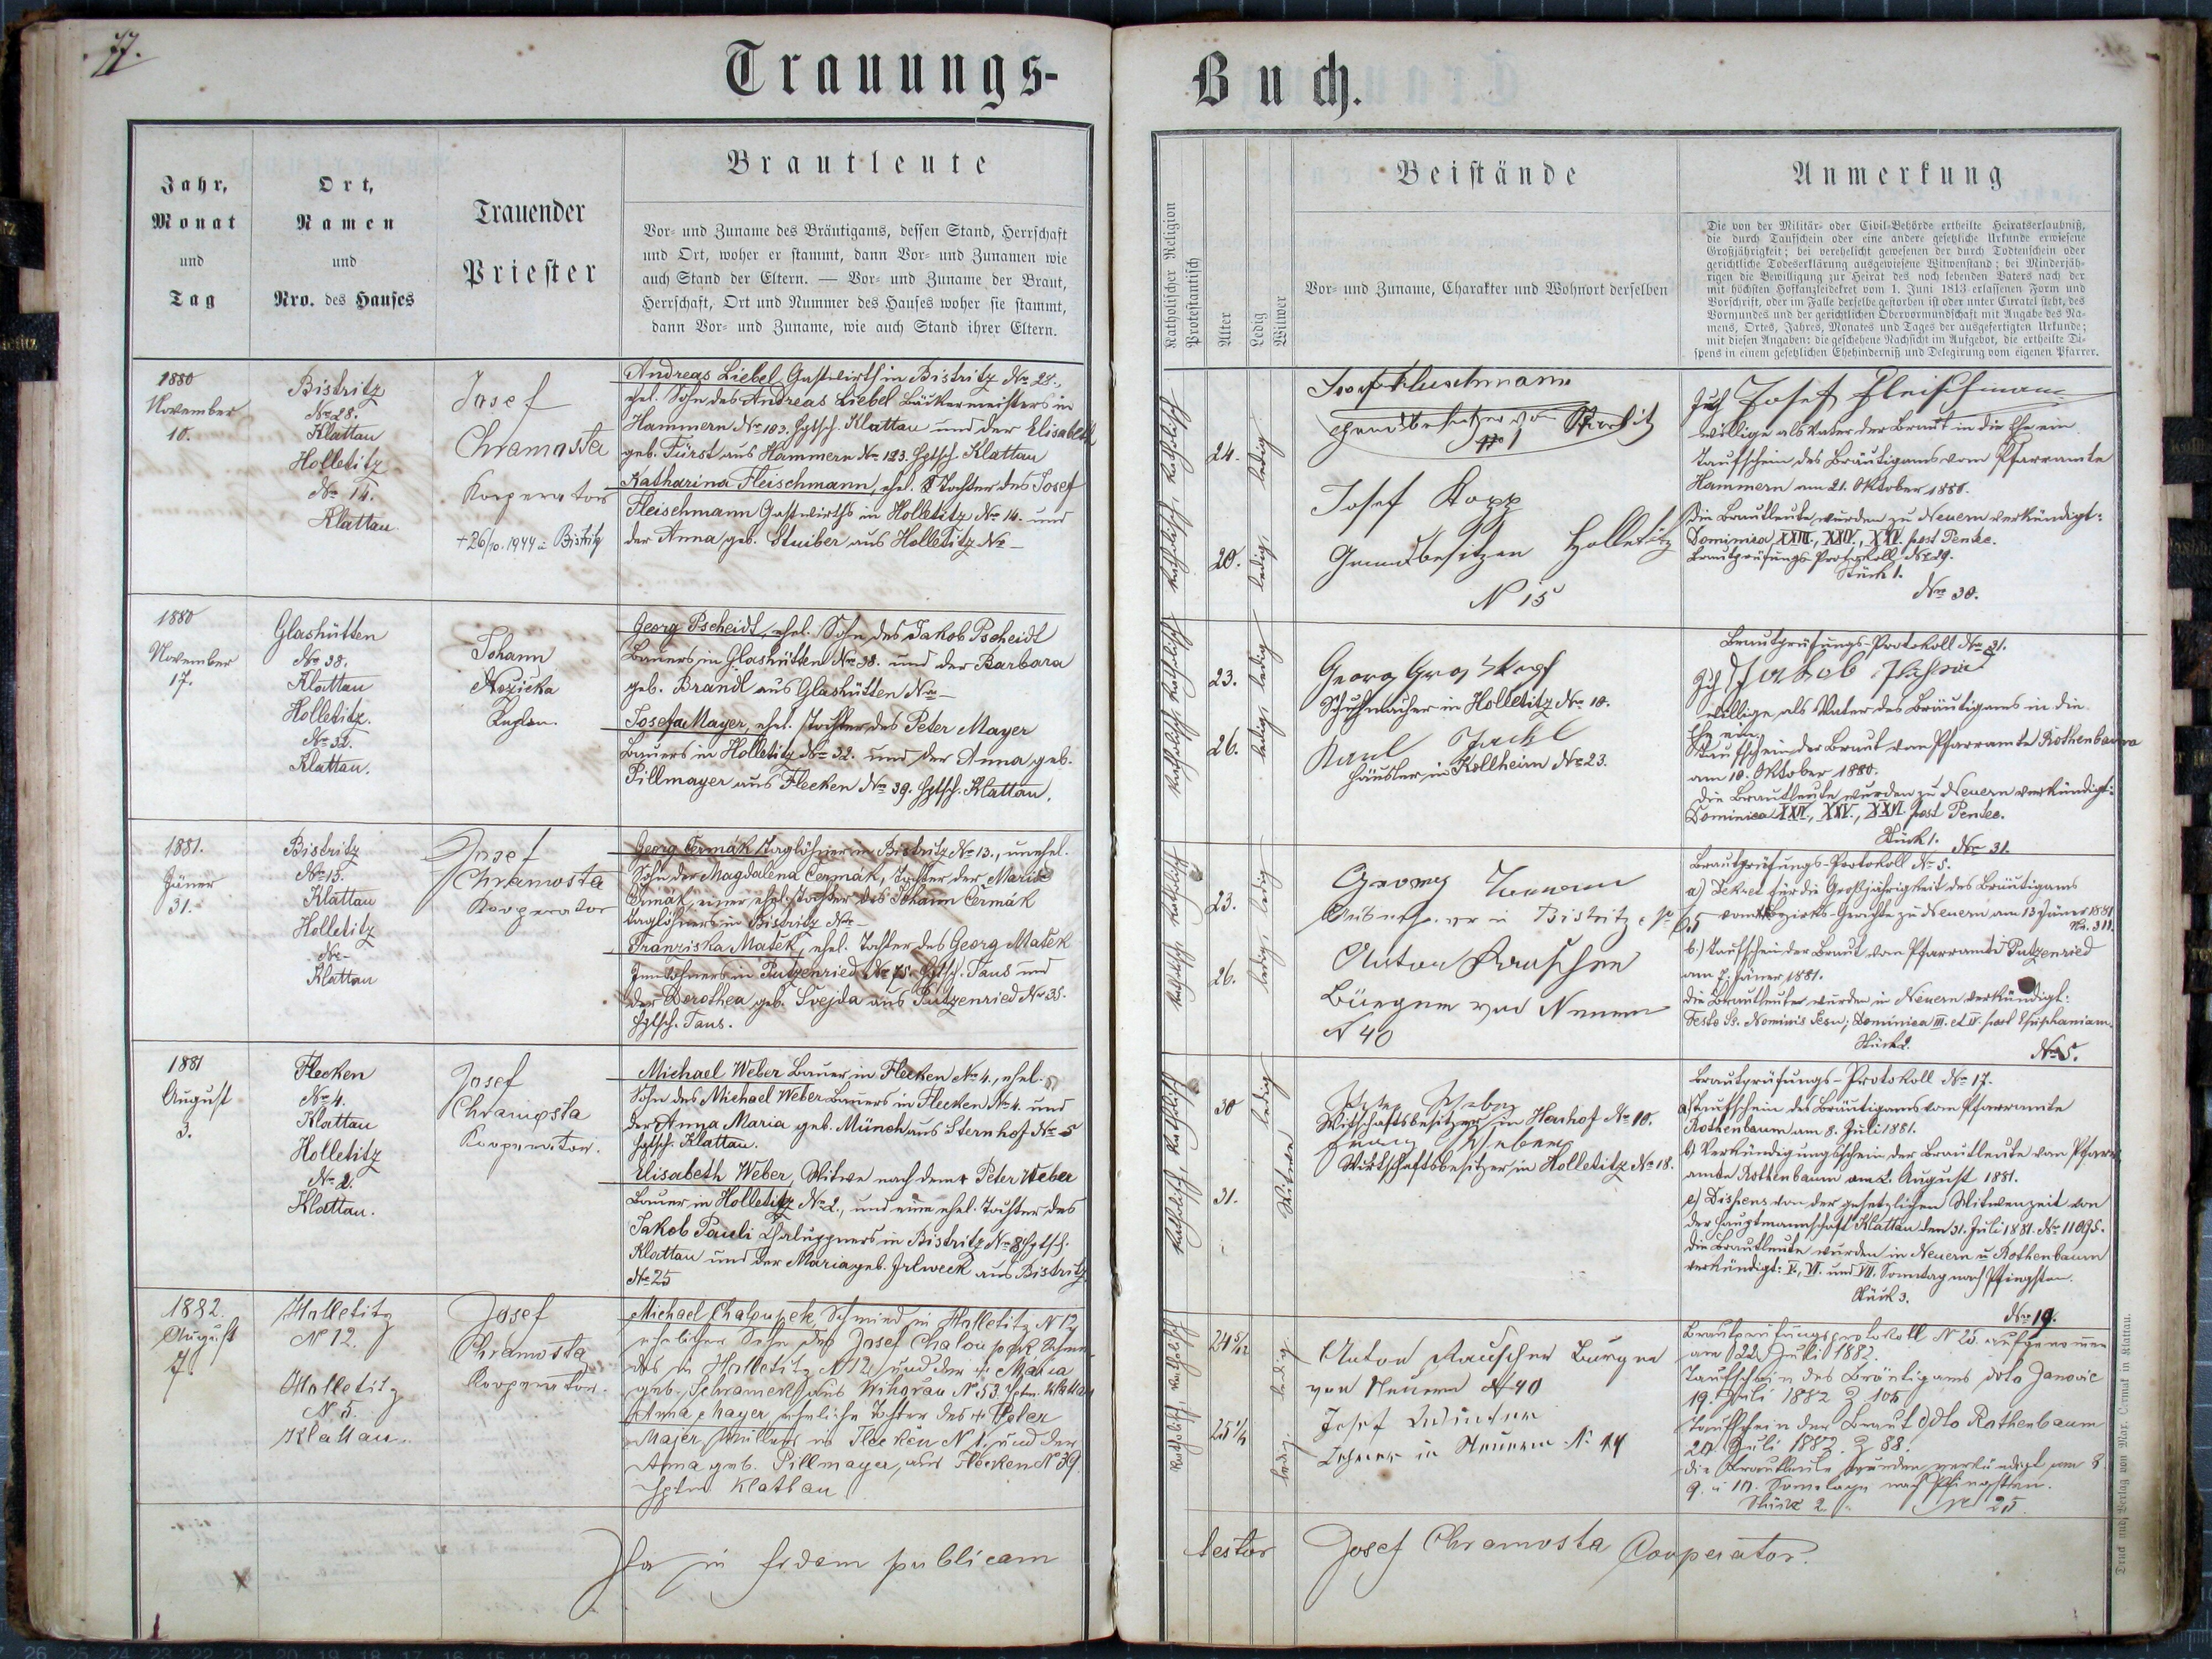 77.
Trauungs-
Buch.
Jahr,
Monat
und
Tag
Ort,
Namen
und
Nro. des Hauses
Trauender
Priester
Brautleute
Vor- und Zuname des Bräutigams, dessen Stand, Herrschaft
und Ort, woher er stammt, dann Vor- und Zunamen wie
auch Stand der Eltern. — Vor- und Zuname der Braut,
Herrschaft, Ort und Nummer des Hauses woher sie stammt,
dann Vor- und Zuname, wie auch Stand ihrer Eltern.
Katholischer Religion
Protestantisch
Alter
Ledig
Witwer
Beistände
Vor- und Zuname, Charakter und Wohnort derselben
Anmerkung
Die von der Militär- oder Civil-Behörde ertheilte Heiratserlaubniß,
die durch Taufschein oder eine andere gesetzliche Urkunde erwiesene
Großjährigkeit; bei verehelicht gewesenen der durch Todtenschein oder
gerichtliche Todeserklärung ausgewiesene Witwenstand; bei Minderjäh-
rigen die Bewilligung zur Heirat des noch lebenden Vaters nach der
mit höchsten Hofkanzleidekret vom 1. Juni 1813 erlassenen Form und
Vorschrift, oder im Falle derselbe gestorben ist oder unter Curatel steht, des
Vormundes und der gerichtlichen Obervormundschaft mit Angabe des Na-
mens, Ortes, Jahres, Monates und Tages der ausgefertigten Urkunde;
mit diesen Angaben: die geschehene Nachsicht im Aufgebot, die ertheilte Di-
spens in einem gesetzlichen Ehehinderniß und Delegirung vom eigenen Pfarrer.
1880
November
10.
Bistritz
No 28.
Klattau
Holletitz
No 14.
Klattau
Josef
Chramosta
Kooperator
+ 26/10. 1944 in Bistritz
Andreas Liebel, Gastwirth in Bistritz No 28.,
ehel. Sohn des Andreas Liebel Bäckermeisters in
Hammern No 183. Hptsch. Klattau und der Elisabeth
geb. Fürst aus Hammern No 123. Hptsch. Klattau
Katharina Fleischmann, ehel. Tochter des Josef
Fleischmann Gastwirths in Holletitz No 14. und
der Anna geb. Stuiber aus Holletitz No —
katholisch, katholisch
24.
20.
ledig
ledig,
Josef Kopp
Grundbesitzer Holletitz
N 15
Ich Josef Fleischmann
willige als Vater der Braut in die Ehe ein.
Taufschein des Bräutigams vom Pfarramte
Hammern am 21. Oktober 1880.
Die Brautleute wurden zu Neuern verkündigt:
Dominica XXIII., XXIV., XXV. post Pentec.
Brautprüfungs-Protokoll No 29.
Stück 1.
No 30.
1880
November
17.
Glashütten
No 38.
Klattau
Holletitz.
No 32.
Klattau.
Johann
Nozicka
Kaplan.
Georg Pscheidt, ehel. Sohn des Jakob Pscheidt
Bauers in Glashütten No 38. und der Barbara
geb. Brandl aus Glashütten No —
Josefa Mayer, ehel. Tochter des Peter Mayer
Bauers in Holletitz No 32. und der Anna geb.
Pillmayer aus Flecken No 39. Hptsch. Klattau.
katholisch katholisch
23.
26.
ledig, ledig
Georg
Schuhmacher in Holletitz No 10.
Karl Jackl
Häusler in Kollheim No 23.
Brautprüfungs-Protokoll No 31.
Ich Jakob
willige als Vater des Bräutigams in die
Ehe ein.
Taufschein der Braut vom Pfarramte Rothenbaum
am 10. Oktober 1880.
Die Brautleute wurden zu Neuern verkündigt:
Dominica XXIV., XXV., XXVI. post Pentec.
Stück 1. No 31.
1881.
Jäner
31.
Bistritz
No 13.
Klattau
Holletitz
No —
Klattau
Josef
Chramosta
Kooperator
Georg Čermák Taglöhner in Bistritz No 13., unehel.
Sohn der Magdalena Čermák, Tochter der Marie
Čermák, einer ehel. Tochter des Johann Čermák
Taglöhners in Bistritz No —
Franziska Mašek, ehel. Tochter des Georg Mašek
Inwohners in Putzenried No 75. Hptsch. Taus und
der Dorothea geb. Švejda aus Putzenried No 35.
Hptsch. Taus.
katholisch katholisch
23.
26.
ledig, ledig
Georg
in Bistritz
Anton Rauscher
Bürger von Neuern
N 40
Brautprüfungs-Protokoll No 5.
a) Dekret für die Großjährigkeit des Bräutigams
vom Bezirks-Gerichte zu Neuern am 13. Jäner 1881
No. 311.
b.) Taufschein der Braut vom Pfarramte Putzenried
am 7. Jäner 1881.
Die Brautleute wurden in Neuern verkündigt:
Festo Ss. Nominis Jesu; Dominica III. et IV. post Epiphaniam.
Stück 2.
No 5.
1881
August
3.
Flecken
No 4.
Klattau
Holletitz
No 2.
Klattau.
Josef
Chramosta
Kooperator.
Michael Weber Bauer in Flecken No 4., ehel.
Sohn des Michael Weber Bauers in Flecken No 4. und
der Anna Maria geb. Münch aus Sternhof No 5
Hptsch. Klattau.
Elisabeth Weber, Witwe nach dem + Peter Weber
Bauer in Holletitz No 2., und eine ehel. Tochter des
Jakob Pauli Chaluppners in Bistritz No 8 Hptsch.
Klattau und der Maria geb. Irlweck aus Bistritz
No 25
katholisch, katholisch
30
31.
Witwe ledig
Peter Weber
Wirtschaftsbesitzer in Hauhof No 10.
Franz Weber
Wirtschaftsbesitzer in Holletitz No 18.
Brautprüfungs-Protokoll No 17.
a) Taufschein des Bräutigams vom Pfarramte
Rothenbaum am 8. Juli 1881.
b) Verkündigungsschein der Brautleute vom Pfarr-
amte Rothenbaum am 2. August 1881.
c) Dispens von der gesetzlichen Witwenzeit von
der Hauptmannschaft Klattau den 31. Juli 1881. No 11095.
Die Brautleute wurden in Neuern u Rothenbaum
verkündigt: V., VI. und VII. Sonntag nach Pfingsten.
Stück 3.
No 19.
1882.
August
7.
Holletitz
N 12.
Holletitz
N. 5.
Klattau.
Josef
Chramosta
Kooperator.
Michael Chaloupek, Schmied in Holletitz N 12,
ehelicher Sohn des Josef Chaloupek Schmie-
des in Holletitz N 12 und der + Maria
geb. Schramek aus Wihorau N 53 Hptm. Klattau
Anna Mayer, eheliche Tochter des + Peter
Majer, Müllers in Flecken N 1. und der
Anna geb. Pillmayer, aus Flecken N 39.
Hptm. Klattau
katholisch, katholisch
24 5/12
ledig. ledig.
Anton Rauscher Burger
von Neuern N 40
Josef
Lehrer in Neuern N. 14
Brautprüfungsprotokoll N 25 aufgenommen
am 22. Juli 1882.
Taufschein des Bräutigams ddto Janovic
19. Juli 1882 Z 105
Taufschein der Braut ddto Rothenbaum
20. Juli 1882. Z 88.
Die Brautleute wurden verkündigt am 8.
9. u 10. Sonntage nach Pfingsten.
Stück 2. N 25.
Ita in fidem publicam
testor Josef Chramosta Cooperator.
Druck und Verlag von Mar. Čermak in Klattau.